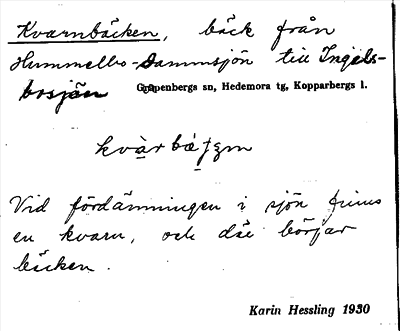 Kvarnbäcken, bäck från
Hummelbo-Dammsjön till Ingels-
bosjön Garpenbergs sn, Hedemora tg, Kopparbergs l.
Vid fördämningen i sjön finns
en kvarn, och där börjar
bäcken.
Karin Hessling 1930